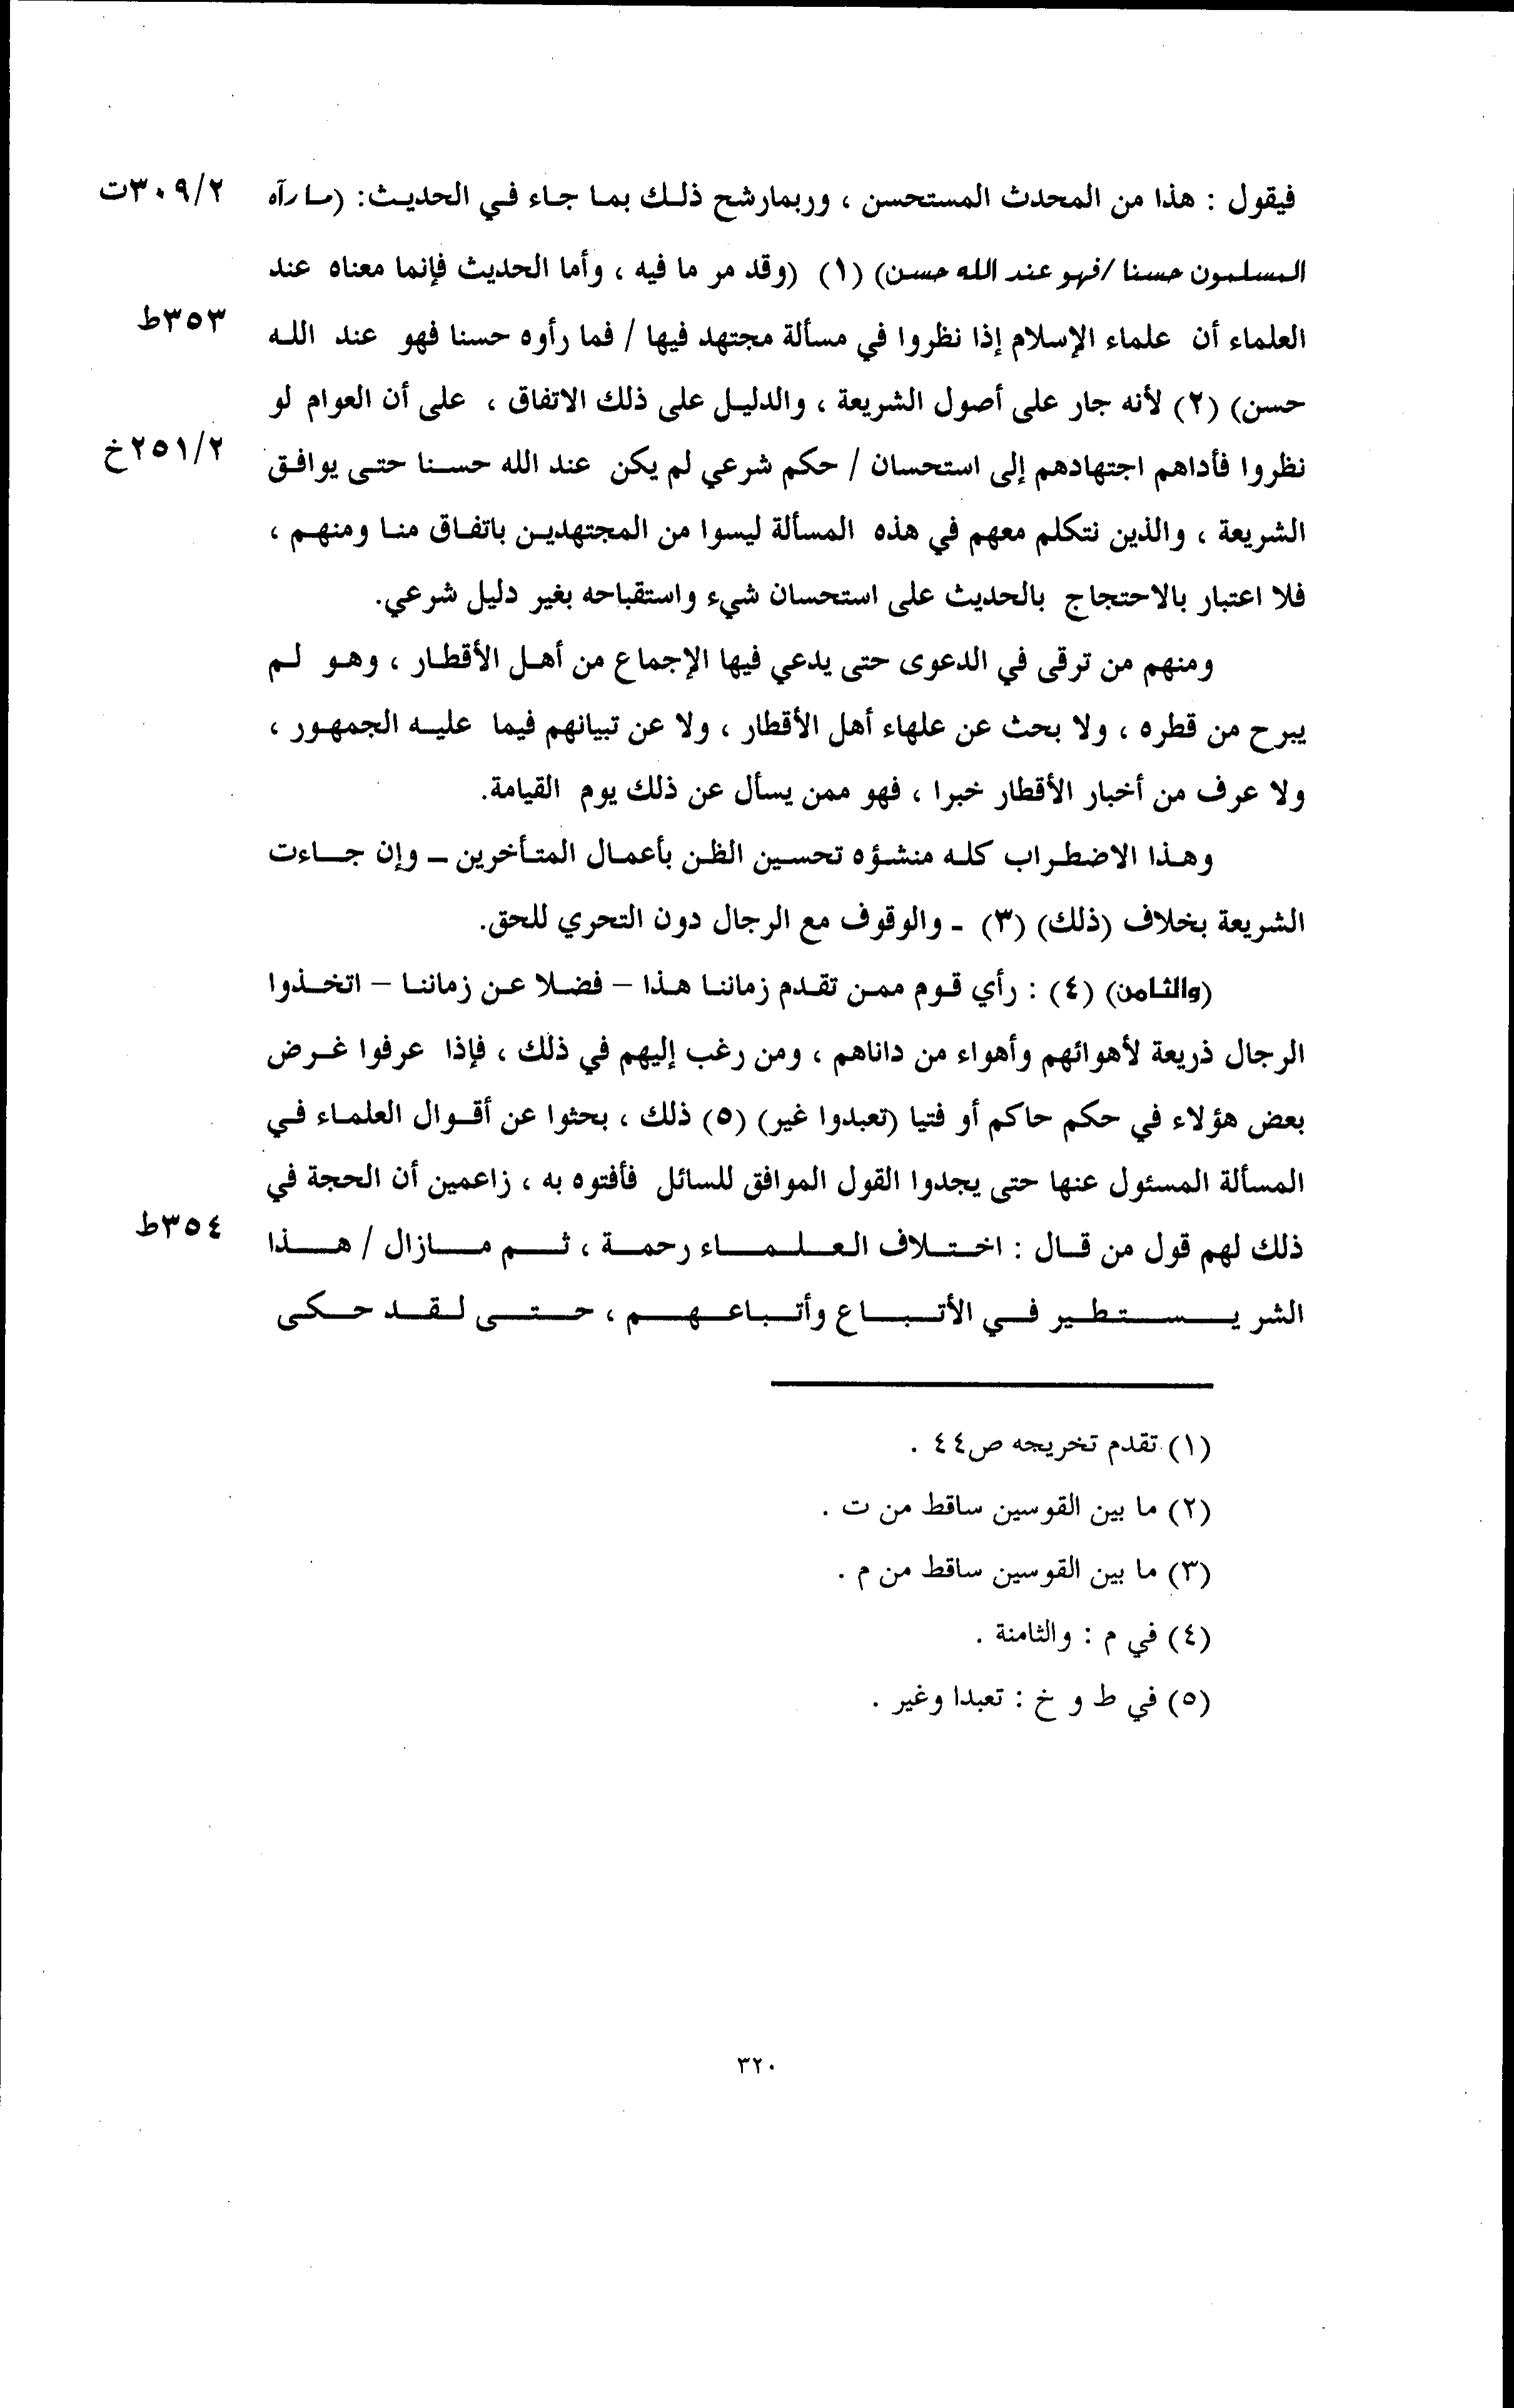 فيقول : هذا من المحدث المستحسن ، وربمارشح ذلك بما جاء في الحديث: (ما رآه ٣٠٩/٢ت
المسلمون حسنا /فهو عند الله حسن) (١) (وقد مر ما فيه ، وأما الحديث فإنما معناه عند
العلماء أن علماء الإسلام إذا نظروا في مسألة مجتهد فيها / فما رأوه حسنا فهو عند الله ٣٥٣ط
حسن) (٢) لأنه جار على أصول الشريعة ، والدليل على ذلك الاتفاق ، على أن العوام لو
نظروا فأداهم اجتهادهم إلى استحسان / حكم شرعي لم يكن عند الله حسنا حتى يوافق ٢٥١/٢خ
الشريعة ، والذين نتكلم معهم في هذه المسألة ليسوا من المجتهدين باتفاق منا ومنهم ،
فلا اعتبار بالاحتجاج بالحديث على استحسان شيء واستقباحه بغير دليل شرعي.
ومنهم من ترقى في الدعوى حتى يدعي فيها الإجماع من أهل الأقطار ، وهو لم
يبرح من قطره ، ولا بحث عن علهاء أهل الأقطار ، ولا عن تبيانهم فيما عليه الجمهور ،
ولا عرف من أخبار الأقطار خبرا ، فهو ممن يسأل عن ذلك يوم القيامة.
وهذا الاضطراب كله منشؤه تحسين الظن بأعمال المتأخرين - وإن جاءت
الشريعة بخلاف (ذلك) (٣) - والوقوف مع الرجال دون التحري للحق.
(والثامن) (٤) : رأي قوم ممن تقدم زماننا هذا - فضلا عن زماننا - اتخذوا
الرجال ذريعة لأهوائهم وأهواء من داناهم ، ومن رغب إليهم في ذلك ، فإذا عرفوا غرض
بعض هؤلاء في حكم حاكم أو فتيا (تعبدوا غير) (٥) ذلك ، بحثوا عن أقوال العلماء في
المسألة المسئول عنها حتى يجدوا القول الموافق للسائل فأفتوه به ، زاعمين أن الحجة في
ذلك لهم قول من قال : اختلاف العلماء رحمة ، ثم مازال / هذا ٣٥٤ط
الشر يستطير في الأتباع وأتباعهم ، حتى لقد حكى
(١) تقدم تخريجه ص٤٤ .
(٢) ما بين القوسين ساقط من ت .
(٣) ما بين القوسين ساقط من م .
(٤) في م : والثامنة .
(٥) في ط و خ : تعبدا وغير .
٣٢٠